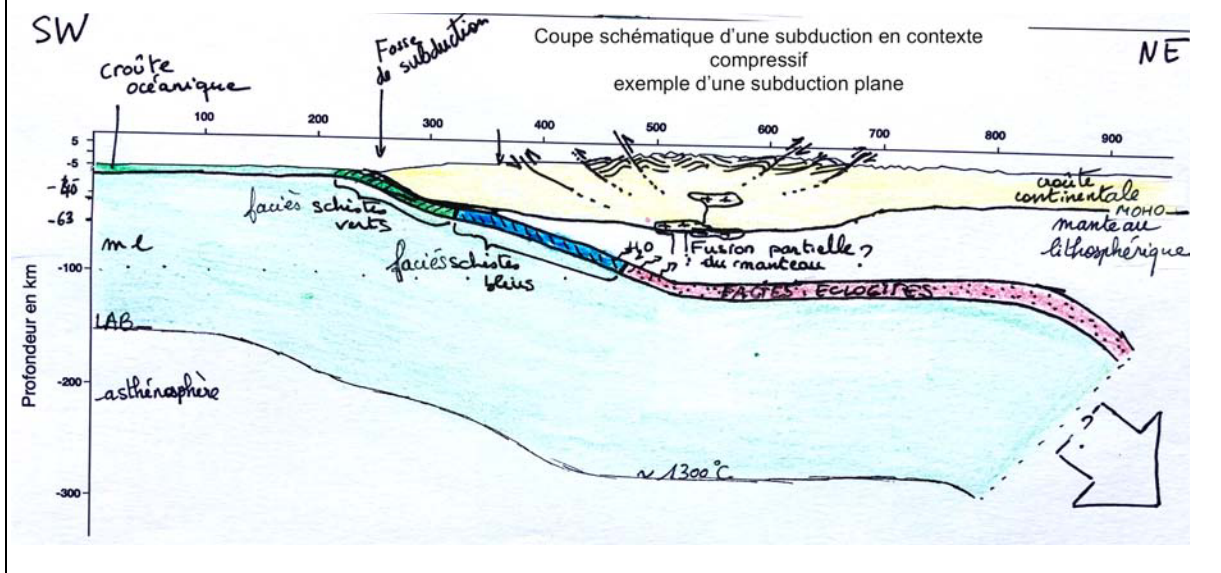 SW
Fosse
de subduction
Coupe schématique d'une subduction en contexte
compressif
exemple d'une subduction plane
NE
croûte
océanique
100
200
300
400
500
600
700
800
900
5
-5
-40
-63
-100
-200
-300
Profondeur en km
faciès schistes
verts
faciès schistes
bleus
H2O
Fusion partielle ?
du manteau
FACIÈS ECLOGITES
croûte
continentale
MOHO
manteau
lithosphérique
ml
LAB
asthénosphère
~ 1300°C
?